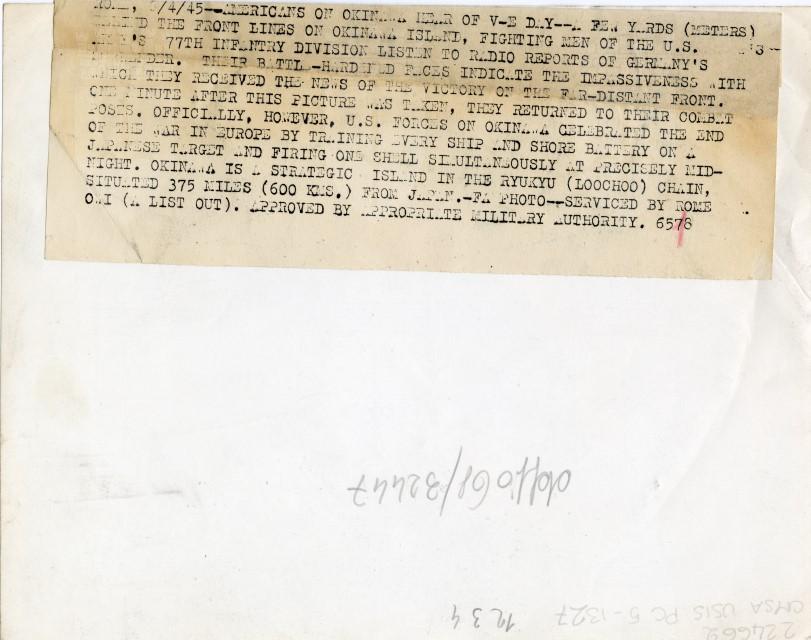 ROME, 6/4/45--AMERICANS ON OKINAWA HEAR OF V-E DAY--A FEW YARDS (METERS)
BEHIND THE FRONT LINES ON OKINAWA ISLAND, FIGHTING MEN OF THE U.S.
ARMY'S 77TH INFANTRY DIVISION LISTEN TO RADIO REPORTS OF GERMANY'S
SURRENDER. THEIR BATTLE-HARDENED FACES INDICATE THE IMPASSIVENESS WITH
WHICH THEY RECEIVED THE NEWS OF THE VICTORY ON THE FAR-DISTANT FRONT.
ONE MINUTE AFTER THIS PICTURE WAS TAKEN, THEY RETURNED TO THEIR COMBAT
POSTS. OFFICIALLY, HOWEVER, U.S. FORCES ON OKINAWA CELEBRATED THE END
OF THE WAR IN EUROPE BY TRAINING EVERY SHIP AND SHORE BATTERY ON A
JAPANESE TARGET AND FIRING ONE SHELL SIMULTANEOUSLY AT PRECISELY MID-
NIGHT. OKINAWA IS A STRATEGIC ISLAND IN THE RYUKYU (LOOCHOO) CHAIN,
SITUATED 375 MILES (600 KMS.) FROM JAPAN.-FA PHOTO--SERVICED BY ROME
OWI (A LIST OUT). APPROVED BY APPROPRIATE MILITARY AUTHORITY. 6578
/32447
1234
CMSA USIS PC 5-1327
224669